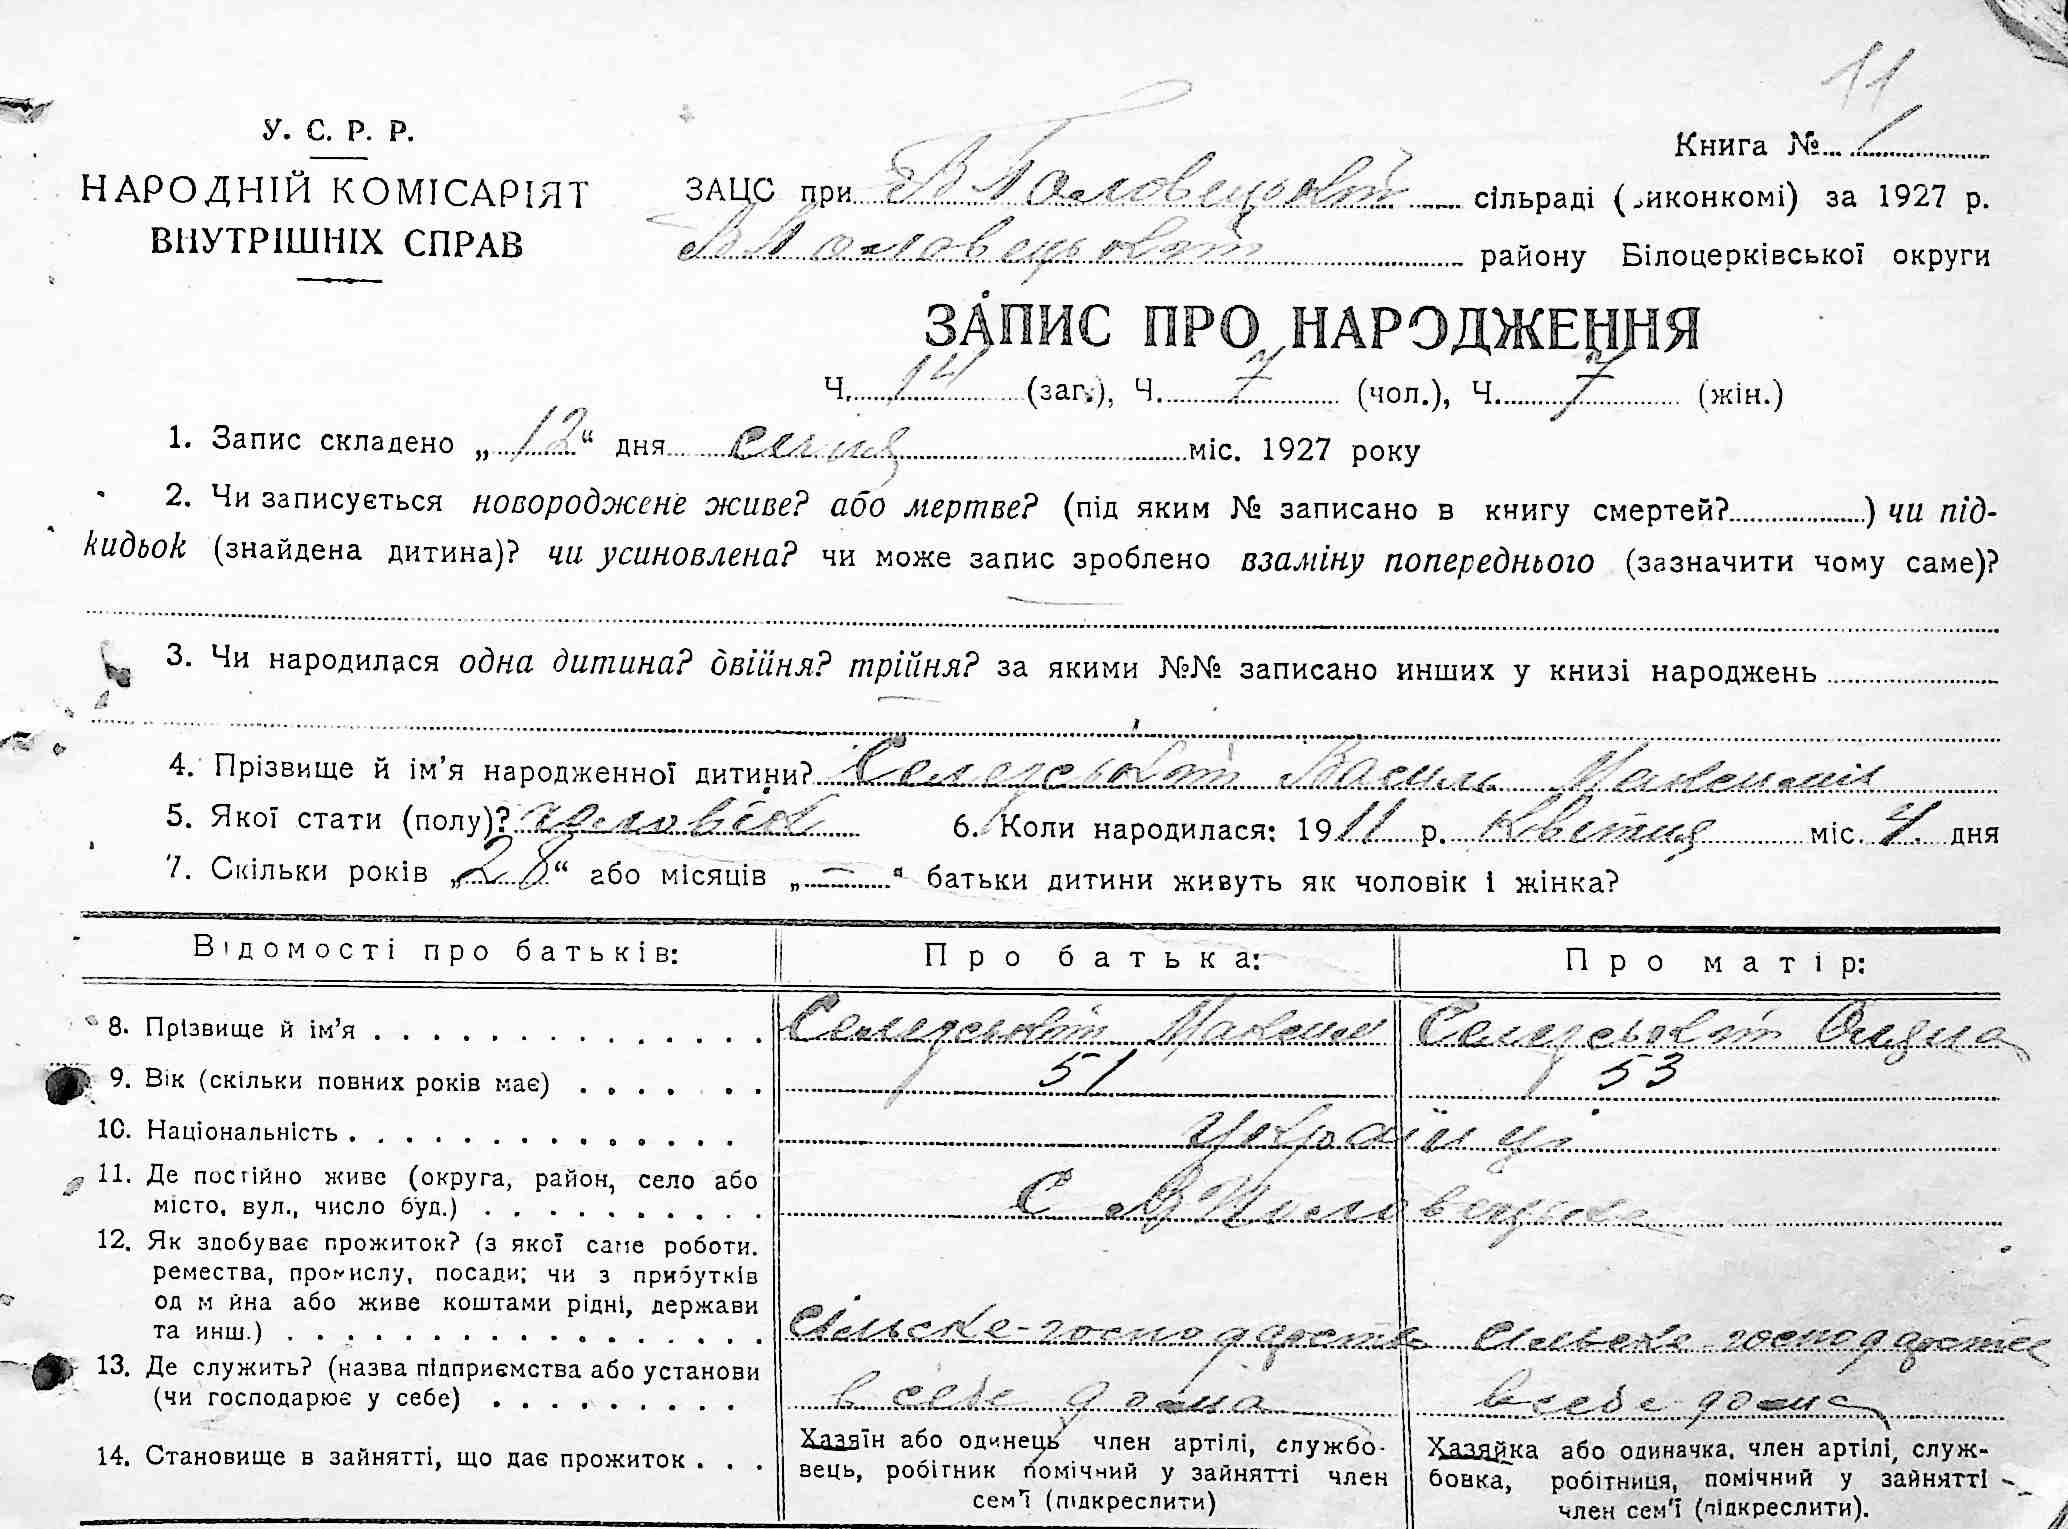 11
У. С. Р. Р.
НАРОДНІЙ КОМІСАРІЯТ
ВНУТРІШНІХ СПРАВ
Книга № 1
ЗАЦС при В Половецькій сільраді (виконкомі) за 1927 р.
В Половецький району Білоцерківської округи
ЗАПИС ПРО НАРОДЖЕННЯ
Ч. 14 (заг.), Ч. 7 (чол.), Ч. 7 (жін.)
1. Запис складено „ 12 “ дня січня міс. 1927 року
2. Чи записується новороджене живе? або мертве? (під яким № записано в книгу смертей? ) чи під-
кидьок (знайдена дитина)? чи усиновлена? чи може запис зроблено взаміну попереднього (зазначити чому саме)?
3. Чи народилася одна дитина? двійня? трійня? за якими №№ записано инших у книзі народжень
4. Прізвище й ім’я народженної дитини? Василь
5. Якої стати (полу)? чоловік 6. Коли народилася: 1911 р. Квітня міс. 4 дня
7. Скільки років „ 28 “ або місяців „ — “ батьки дитини живуть як чоловік і жінка?
Відомості про батьків: Про батька: Про матір:
8. Прізвище й ім’я Максим
9. Вік (скільки повних років має) 51 53
10. Національність Українці
11. Де постійно живе (округа, район, село або
місто, вул., число буд.) С В
12. Як здобуває прожиток? (з якої саме роботи.
ремества, промислу, посади; чи з прибутків
од м йна або живе коштами рідні, держави
та инш.) сільске-господарств сильске господарство
13. Де служить? (назва підприємства або установи
(чи господарює у себе) в себе дома в себе дома
14. Становище в зайнятті, що дає прожиток
Хазяїн або одинець член артілі, службо-
вець, робітник помічний у зайнятті член
сем’ї (підкреслити)
Хазяйка або одиначка, член артілі, служ-
бовка, робітниця, помічний у зайнятті
член сем’ї (підкреслити).